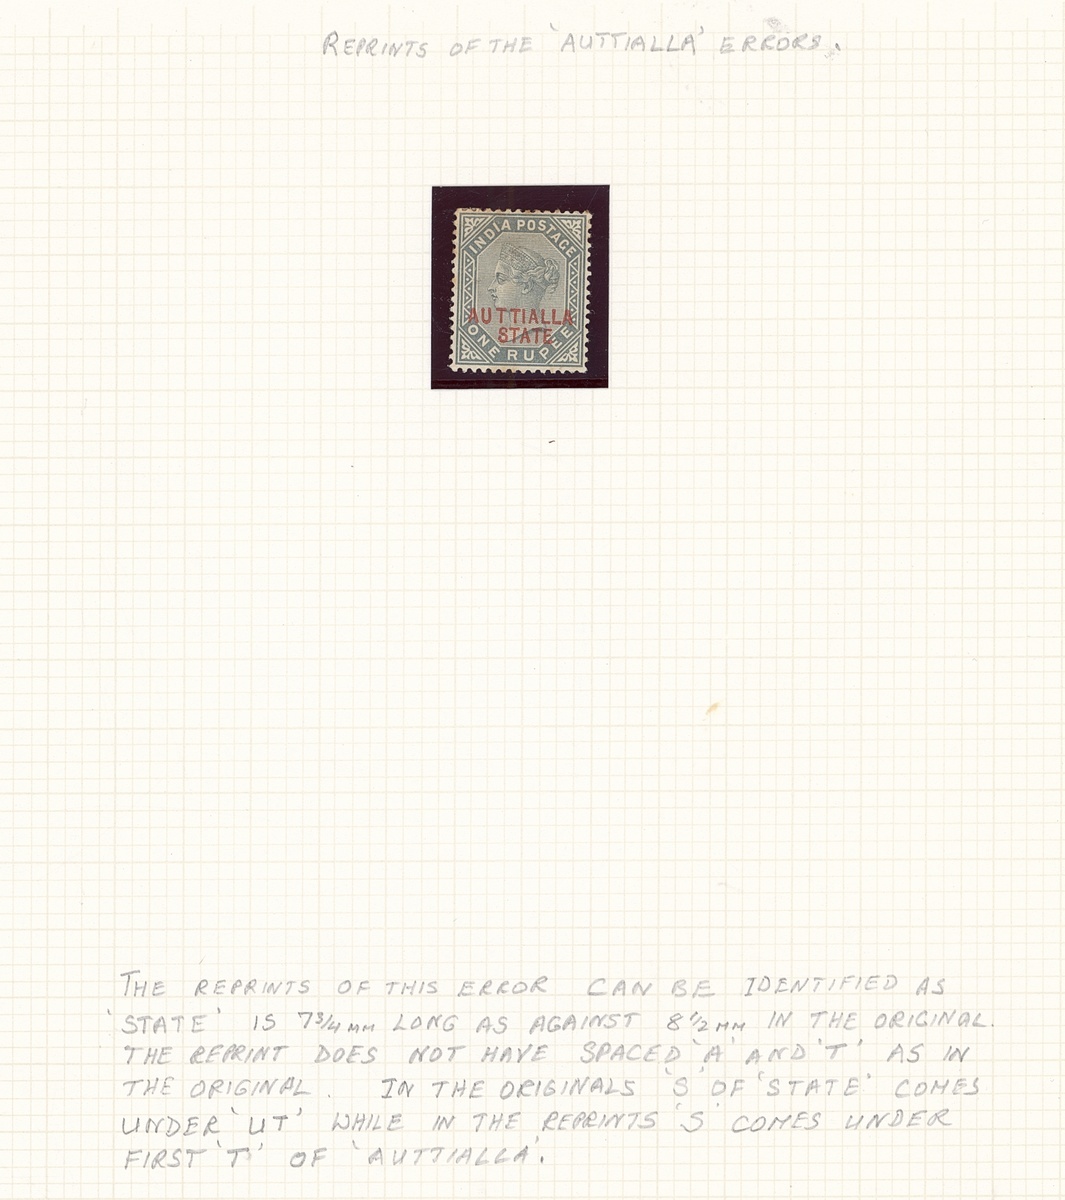 REPRINTS OF THE 'AUTTIALLA' ERRORS.
INDIA POSTAGE
AUTTIALLA
STATE
ONE RUPEE
THE REPRINTS OF THIS ERROR CAN BE IDENTIFIED AS
'STATE' IS 7 3/4 MM LONG AS AGAINST 8 1/2 MM IN THE ORIGINAL.
THE REPRINT DOES NOT HAVE SPACED 'A' AND 'T' AS IN
THE ORIGINAL. IN THE ORIGINALS 'S' OF 'STATE' COMES
UNDER 'UT' WHILE IN THE REPRINTS 'S' COMES UNDER
FIRST 'T' OF 'AUTTIALLA'.